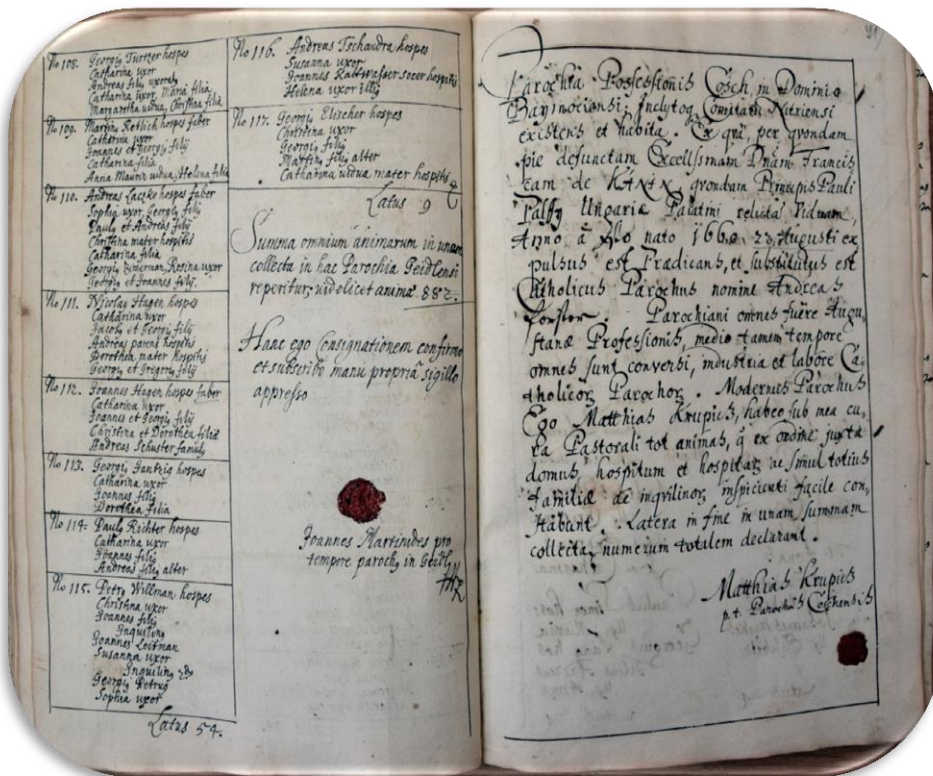 No 108. Georgi9 Turtzer hospes
Catharina uxor
Andreas fili9 uxorat9
Catharina uxor, Maria filia
Margaretha vidua, Christina filia
No 109. Martin9 Retlich hospes faber
Catherina uxor
Joannes et Georgi9 filij
Catharina filia
Anna Maurin vidua, Helena filia
No 110. Andreas Laczko hospes faber
Sophia uxor, Georgi9 fili9
Paul9 et Andreas filij
Christina mater hospitis
Catharina filia
Georgi9 Zimerman, Rosina uxor
Georgi9 et Joannes filij
No 111. Nicolas Hagen hospes
Catharina uxor
Jacob9 et Georgi9 filij
Andreas parens hospitis
Dorothea mater hospitis
Georgi9 et Gregori9 filij
No 112. Joannes Hagen hospes faber
Catharina uxor
Joannes et Georgi9 filij
Christina et Dorothea filiæ
Andreas Schuster famul9
No 113. Georgi9 Jantzig hospes
Catharina uxor
Joannes fili9
Dorothea filia
No 114. Paul9 Richter hospes
Catharina uxor
Joannes fili9
Andreas fili9 alter
No 115. Petr9 Willman hospes
Christina uxor
Joannes fili9
Joannes Leitman
Susanna uxor
Georgi9 Petri9
Sophia uxor
Latus 54.
No 116. Andreas Tschandra hospes
Susanna uxor
Joannes Kaltwasser socer hospitis
Helena uxor illi9
No 117. Georgi9 Elischer hospes
Christina uxor
Georgi9 fili9
Martin9 fili9 alter
Catharina vidua mater hospitis
Latus 9
Summa omnium animarum in unum
collecta in hac Parochia Geidlensi
reperitur, videlicet animæ 882.
Hanc ego Consignationem confirmo
et subscribo manu propria sigillo
appresso
Joannes Martinides pro
tempore paroch9 in Geidl
Parochia Possessionis Cosch, in Dominio
Baymociensi; Inclytoq Comitatu Nitriensi
existens et habita. Ex qua per quondam
pie defunctam Excellssmam Dnam Francis
cam de KAXAN quondam Principis Pauli
Palffy Ungariæ Palatini relicta Viduam
Anno à Xto nato 1660 23 Augusti ex
pulsus est Prædicans, et substitutus est
Catholicus Parochus nomine Andreas
Forster. Parochiani omnes fuêre Augu,
stanæ Professionis, medio tamen tempore
omnes sunt conversi, industria et labore Ca,
tholicor Parochor. Modernus Parochus
Ego Matthias Krupich, habeo sub mea cu,
ra Pastorali tot animas, q ex ordine juxta
domus hospitum et hospitar ac simul totius
familiæ de inqvilinor inspicienti facile con,
stabunt. Latera in fine in unam summam
collecta, numerum totalem declarant.
Matthias Krupich
p. t. Parochus Coschensis